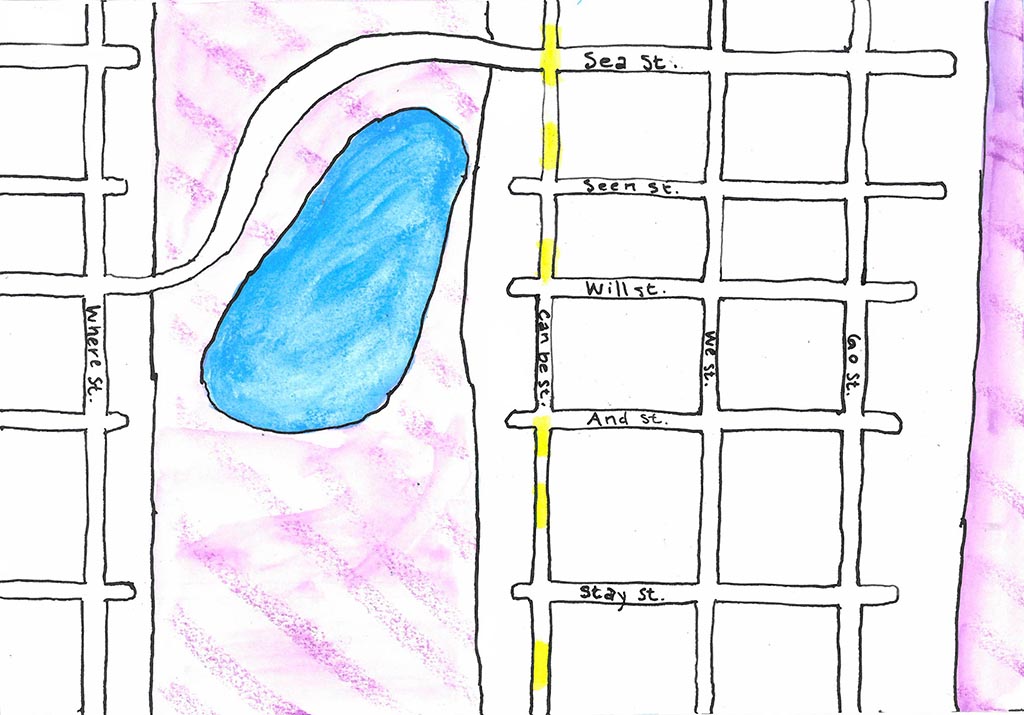 Sea St.
Seen st.
Will st.
Where St.
Can be st.
We St.
Go St.
And st.
Stay st.